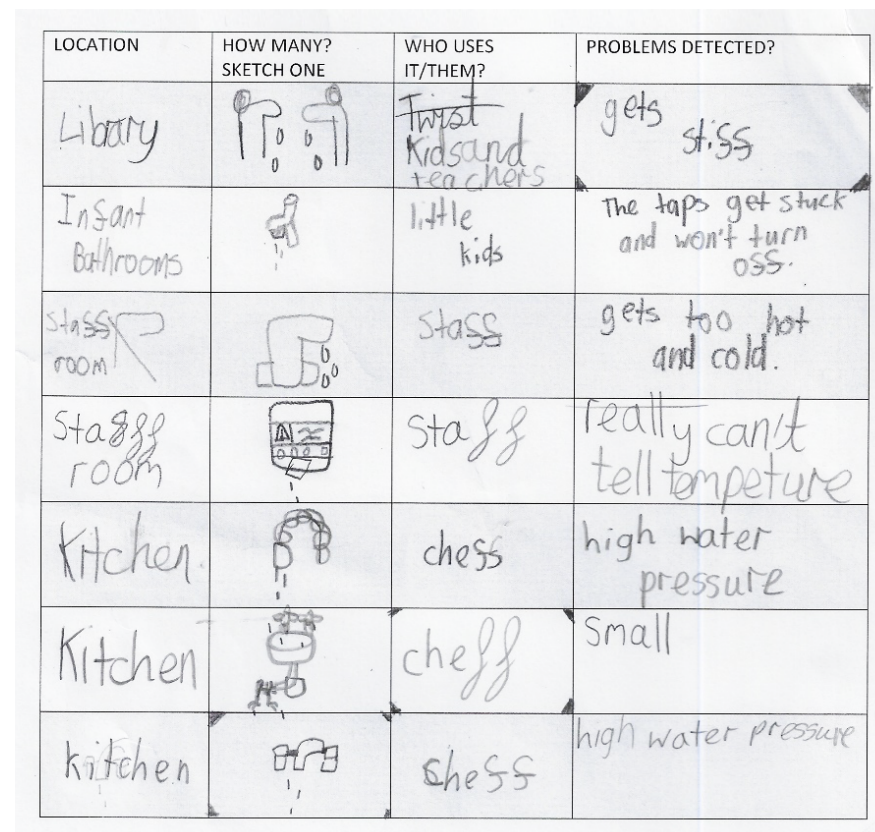 LOCATION
HOW MANY?
SKETCH ONE
WHO USES
IT/THEM?
PROBLEMS DETECTED?
Libary
Twist
Kids and
teachers
gets
stiff
Infant
Bathrooms
little
kids
The taps get stuck
and won't turn
off.
staff
room
staff
gets too hot
and cold.
Staff
room
Staff
really can't
tell tempeture
Kitchen
cheff
high water
pressure
Kitchen
cheff
Small
kitchen
cheff
high water pressure